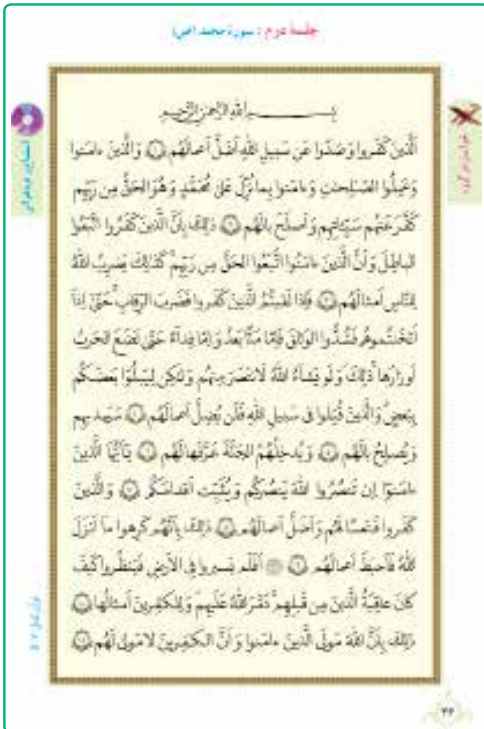 جلسهٔ دوم : سورهٔ محمد (ص)
بِسْمِ اللَّهِ الرَّحْمَٰنِ الرَّحِيمِ
الَّذينَ كَفَروا وَصَدّوا عَن سَبيلِ اللَّهِ أَضَلَّ أَعمالَهُم ١ وَالَّذينَ ءامَنوا
وَعَمِلُوا الصّٰلِحٰتِ وَءامَنوا بِما نُزِّلَ عَلىٰ مُحَمَّدٍ وَهُوَ الحَقُّ مِن رَبِّهِم
كَفَّرَ عَنهُم سَيِّـٔاتِهِم وَأَصلَحَ بالَهُم ٢ ذٰلِكَ بِأَنَّ الَّذينَ كَفَرُوا اتَّبَعُوا
الباطِلَ وَأَنَّ الَّذينَ ءامَنُوا اتَّبَعُوا الحَقَّ مِن رَبِّهِم كَذٰلِكَ يَضرِبُ اللَّهُ
لِلنّاسِ أَمثالَهُم ٣ فَإِذا لَقيتُمُ الَّذينَ كَفَروا فَضَربَ الرِّقابِ حَتّىٰ إِذا
أَثخَنتُموهُم فَشُدُّوا الوَثاقَ فَإِمّا مَنًّا بَعدُ وَإِمّا فِداءً حَتّىٰ تَضَعَ الحَربُ
أَوزارَها ذٰلِكَ وَلَو يَشاءُ اللَّهُ لَانتَصَرَ مِنهُم وَلٰكِن لِيَبلُوَا۟ بَعضَكُم
بِبَعضٍ وَالَّذينَ قُتِلوا فى سَبيلِ اللَّهِ فَلَن يُضِلَّ أَعمالَهُم ٤ سَيَهديهِم
وَيُصلِحُ بالَهُم ٥ وَيُدخِلُهُمُ الجَنَّةَ عَرَّفَها لَهُم ٦ يٰأَيُّهَا الَّذينَ
ءامَنوا إِن تَنصُرُوا اللَّهَ يَنصُركُم وَيُثَبِّت أَقدامَكُم ٧ وَالَّذينَ
كَفَروا فَتَعسًا لَهُم وَأَضَلَّ أَعمالَهُم ٨ ذٰلِكَ بِأَنَّهُم كَرِهوا ما أَنزَلَ
اللَّهُ فَأَحبَطَ أَعمالَهُم ٩ ۞ أَفَلَم يَسيروا فِى الأَرضِ فَيَنظُروا كَيفَ
كانَ عاقِبَةُ الَّذينَ مِن قَبلِهِم دَمَّرَ اللَّهُ عَلَيهِم وَلِلكٰفِرينَ أَمثالُها ١٠
ذٰلِكَ بِأَنَّ اللَّهَ مَولَى الَّذينَ ءامَنوا وَأَنَّ الكٰفِرينَ لا مَولىٰ لَهُم ١١